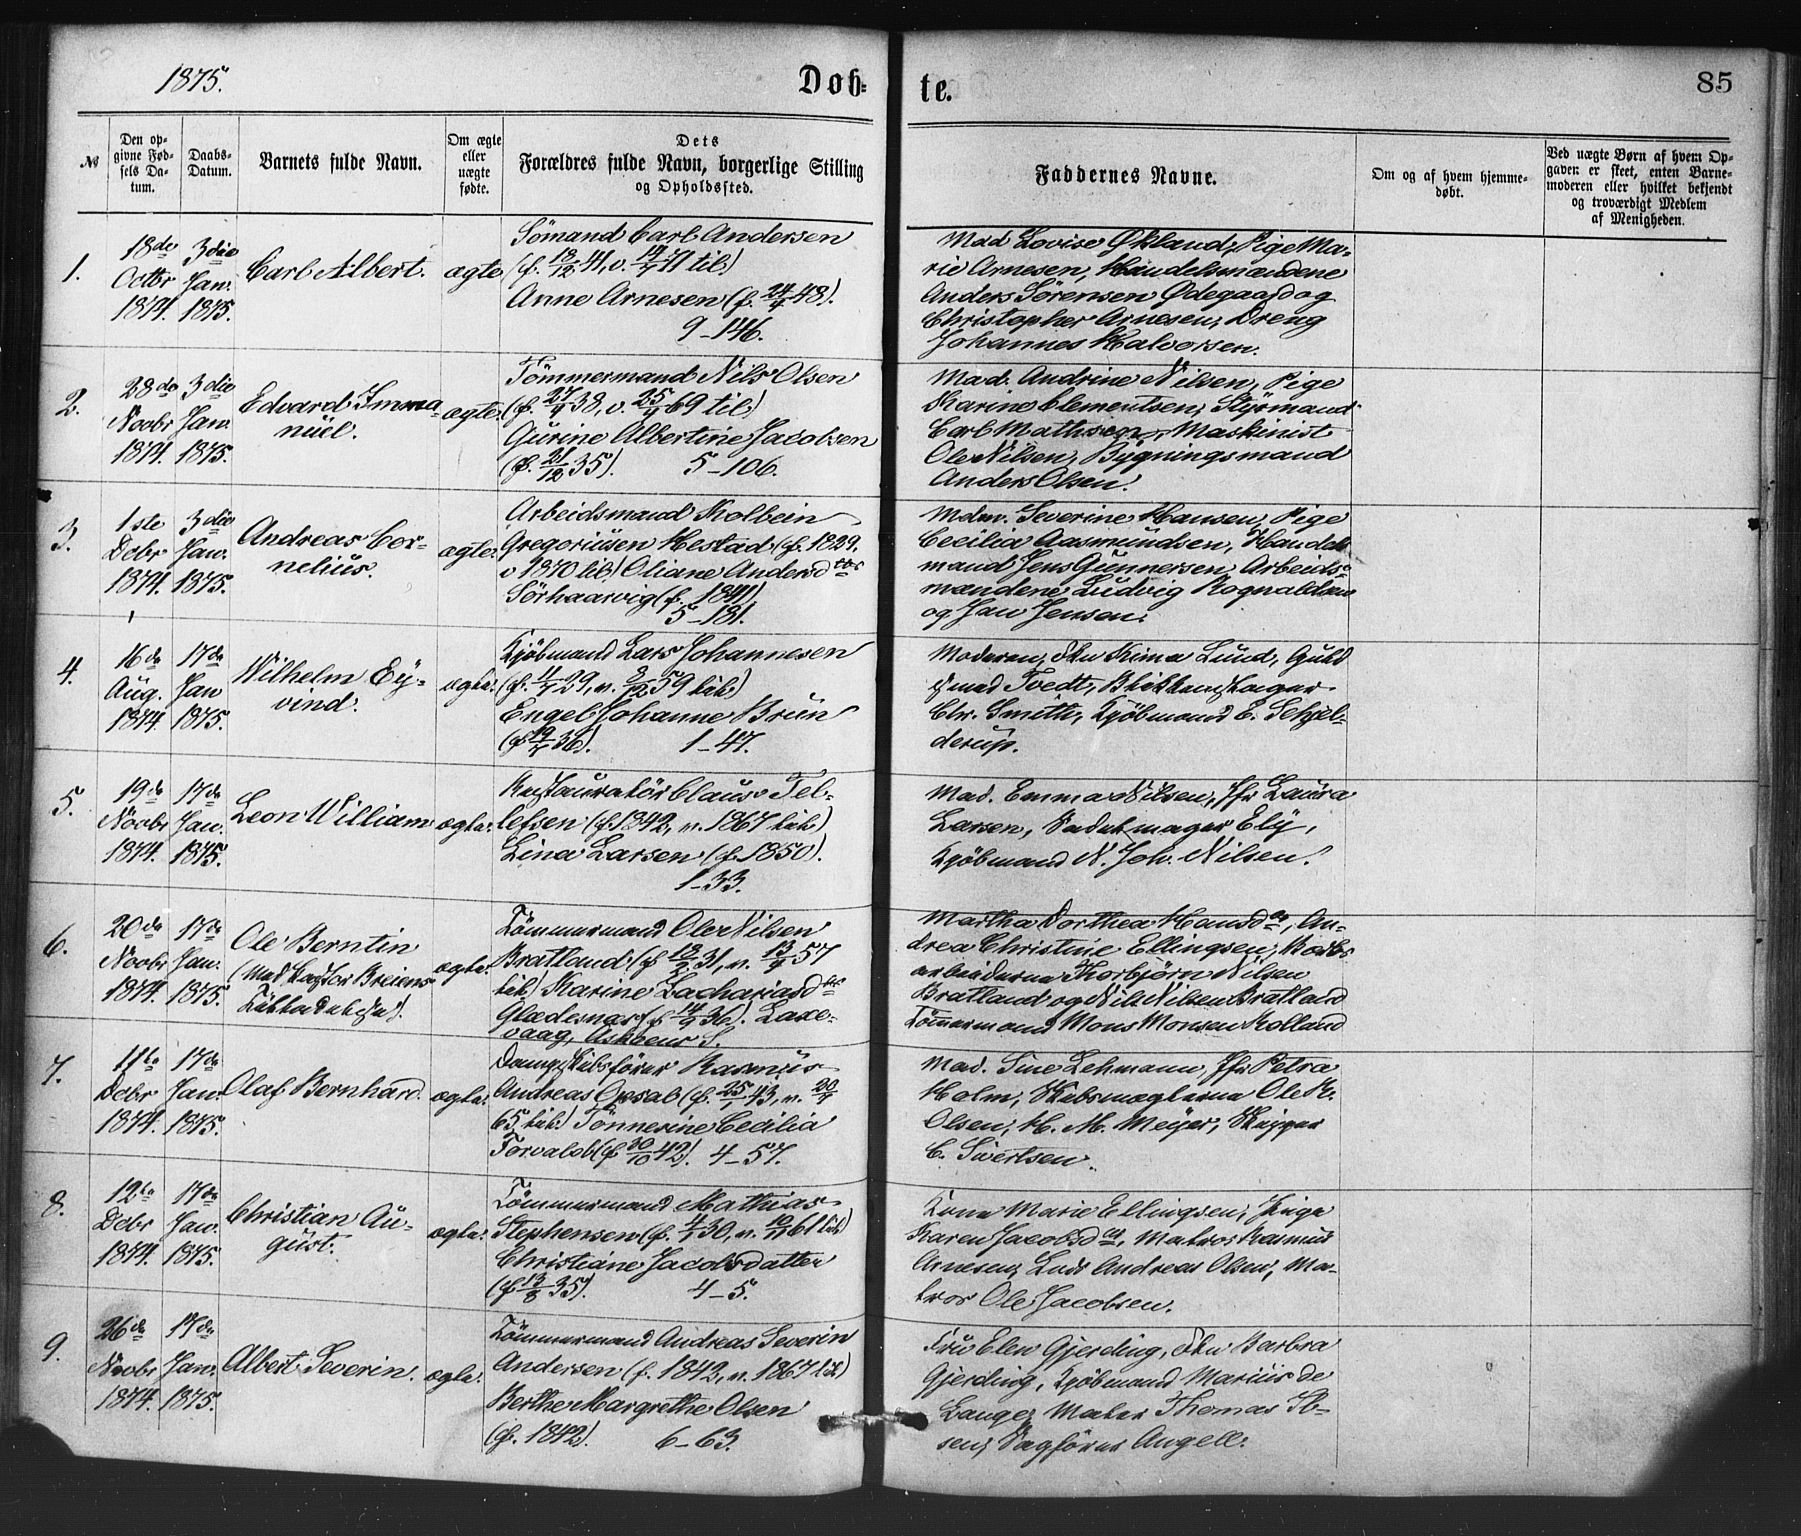 1875.
Døb-
te.
85
№
Den op-
givne Fød-
sels Da-
tum.
Daabs-
Datum.
Barnets fulde Navn.
Om ægte
eller
uægte
fødte.
Dets
Forældres fulde Navn, borgerlige Stilling
og Opholdssted.
Faddernes Navne.
Om og af hvem hjemme-
døbt.
Ved uægte Børn af hvem Op-
gaven er skeet, enten Barne-
moderen eller hvilket bekjendt
og troværdigt Medlem
af Menigheden.
1.
18de
Octbr
1874.
3die
Jan.
1875.
Carl Albert.
ægte
Sømand Carl Andersen
(f. 18/12 41, v. 14/4 71 til)
Anne Arnesen (f. 24/4 48).
9-146.
Mad Lovise Økland, Pige Ma-
rie Arnesen, Handelsmændene
Anders Sørensen Ødegaard og
Christopher Arnesen, Dreng
Johannes Halvorsen.
2.
28de
Novbr
1874.
3die
Jan.
1875.
Edvard Imma-
nüel.
ægte.
Tømmermand Nils Olsen
(f. 27/4 38, v. 25/4 69 til)
Gurine Albertine Jacobsen
(f. 31/12 35). 5-106.
Mad. Andrine Nilsen, Pige
Karine Clementsen, Styrmand
Carl Mathsen, Maskinist
Ole Nilsen, Bygningsmand
Anders Olsen.
3.
1ste
Debr
1874.
3die
Jan.
1875.
Andreas Cor-
nelius.
ægte.
Arbeidsmand Kolbein
Gregoriusen Hestad (f. 1829,
v 1870 til) Oliane Andersdtr
Sørhaarvig (f. 1841).
5-181.
Mdm. Severine Hansen, Pige
Cecilia Aasmundsen, Handels
mand Jens Gunnersen Arbeids-
mændene Ludvig Rognaldsen
og Jan Jensen.
4.
16de
Aug.
1874.
17de
Jan
1875.
Wilhelm Ey-
vind.
ægte.
Kjøbmand Lars Johannesen
(f. 11/7 29, v. 2/12 59 til)
Engel Johanne Brun
(f 19/5 36). 1-47.
Moderen, Frk Kima Lund, Guld
smed Tvedt, Blikkenslager
Chr. Smith, Kjøbmand E. Schjel-
derup.
5.
19de
Novbr
1874.
17de
Jan.
1875.
Leon William
ægte.
Restauratør Claus Tel-
lefsen (f. 1842, v. 1867 til)
Lina Larsen (f. 1850).
1-33.
Mad. Emma Nilsen, Jfr Laura
Larsen, Sadelmager Ely,
Kjøbmand N. Joh. Nilsen.
6.
20de
Novbr
1874.
17de
Jan.
1875.
Ole Berntin
ægte.
Tømmermand Ole Nilsen
Bratland (f 18/2 31, v. 13/4 57
til) Karine Zachariasdtr
Glædesnæs (f 14/9 36). Laxe-
vaag, Askøens S.
Martha Dorthea Hansdtr, An-
drea Christine Ellingsen, Værks
arbeiderne Thorbjørn Nilsen
Bratland og Nils Nilsen Bratland
Tømmermand Mons Monsen Kolland
7.
11te
Debr
1874.
17de
Jan.
1875.
Olaf Bernhard.
ægte.
Dampskibsfører Rasmus
Andreas Opsal (f. 25/1 43, v. 20/4
65 til) Tønnerine Cecilia
Torvald (f 30/10 42). 4-57.
Mad. Sine Lehmann, Jfr Petra
Holm, Skibsmæglerne Ole R.
Olsen, H. M. Meyer, Skipper
C. Sivertsen.
8.
12te
Debr
1874.
17de
Jan.
1875.
Christian Au-
gust.
ægte.
Tømmermand Mathias
Stephensen (f. 4/1 30, v. 10/11 61 til)
Christiane Jacobsdatter
(f 13/8 35). 4-5.
Kone Marie Ellingsen, Pige
Karen Jacobsdtr, Matros Rasmus
Arnesen, Lods Andreas Olsen, Ma-
tros Ole Jacobsen.
9.
26de
Novbr
1874.
17de
Jan.
1875.
Albert Severin.
ægte.
Tømmermand Andreas Severin
Andersen (f. 1842, v. 1867 til)
Berthe Margrethe Olsen
(f. 1842). 6-63.
Fru Elen Gjerding, Frk Barbra
Gjerding, Kjøbmand Marius de
Lange, Maler Thomas Ib-
sen, Sagfører Angell.